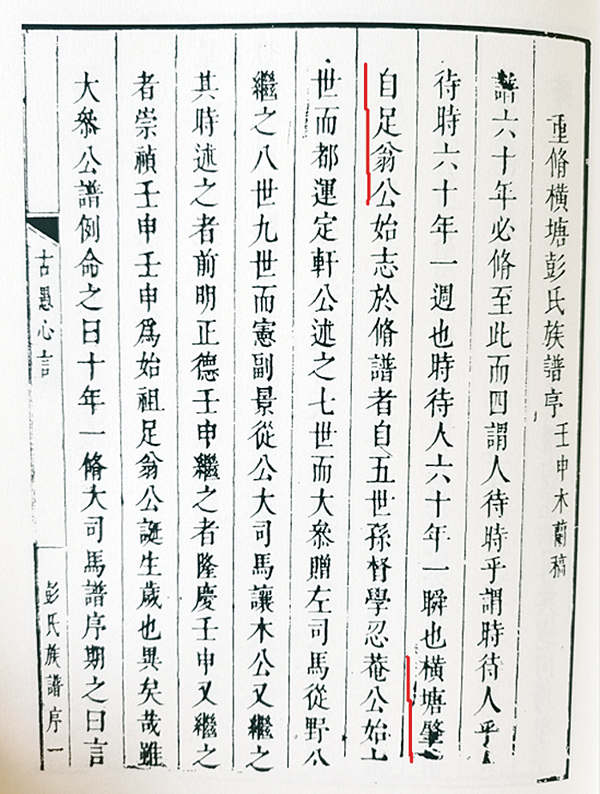 重脩橫塘彭氏族譜序 壬申木蘭稿
譜六十年必脩至此而四謂人待時乎謂時待人乎人
待時六十年一週也時待人六十年一瞬也橫塘肇
自足翁公始志於脩譜者自五世孫督學忍菴公始
世而都運定軒公述之七世而大參贈左司馬從野公
繼之八世九世而憲副景從公大司馬讓木公又繼之
其時述之者前明正德壬申繼之者隆慶壬申又繼之
者崇禎壬申壬申爲始祖足翁公誕生歲也異矣哉雖
大參公譜例命之曰十年一脩大司馬譜序期之曰言
古愚心言
彭氏族譜序 一